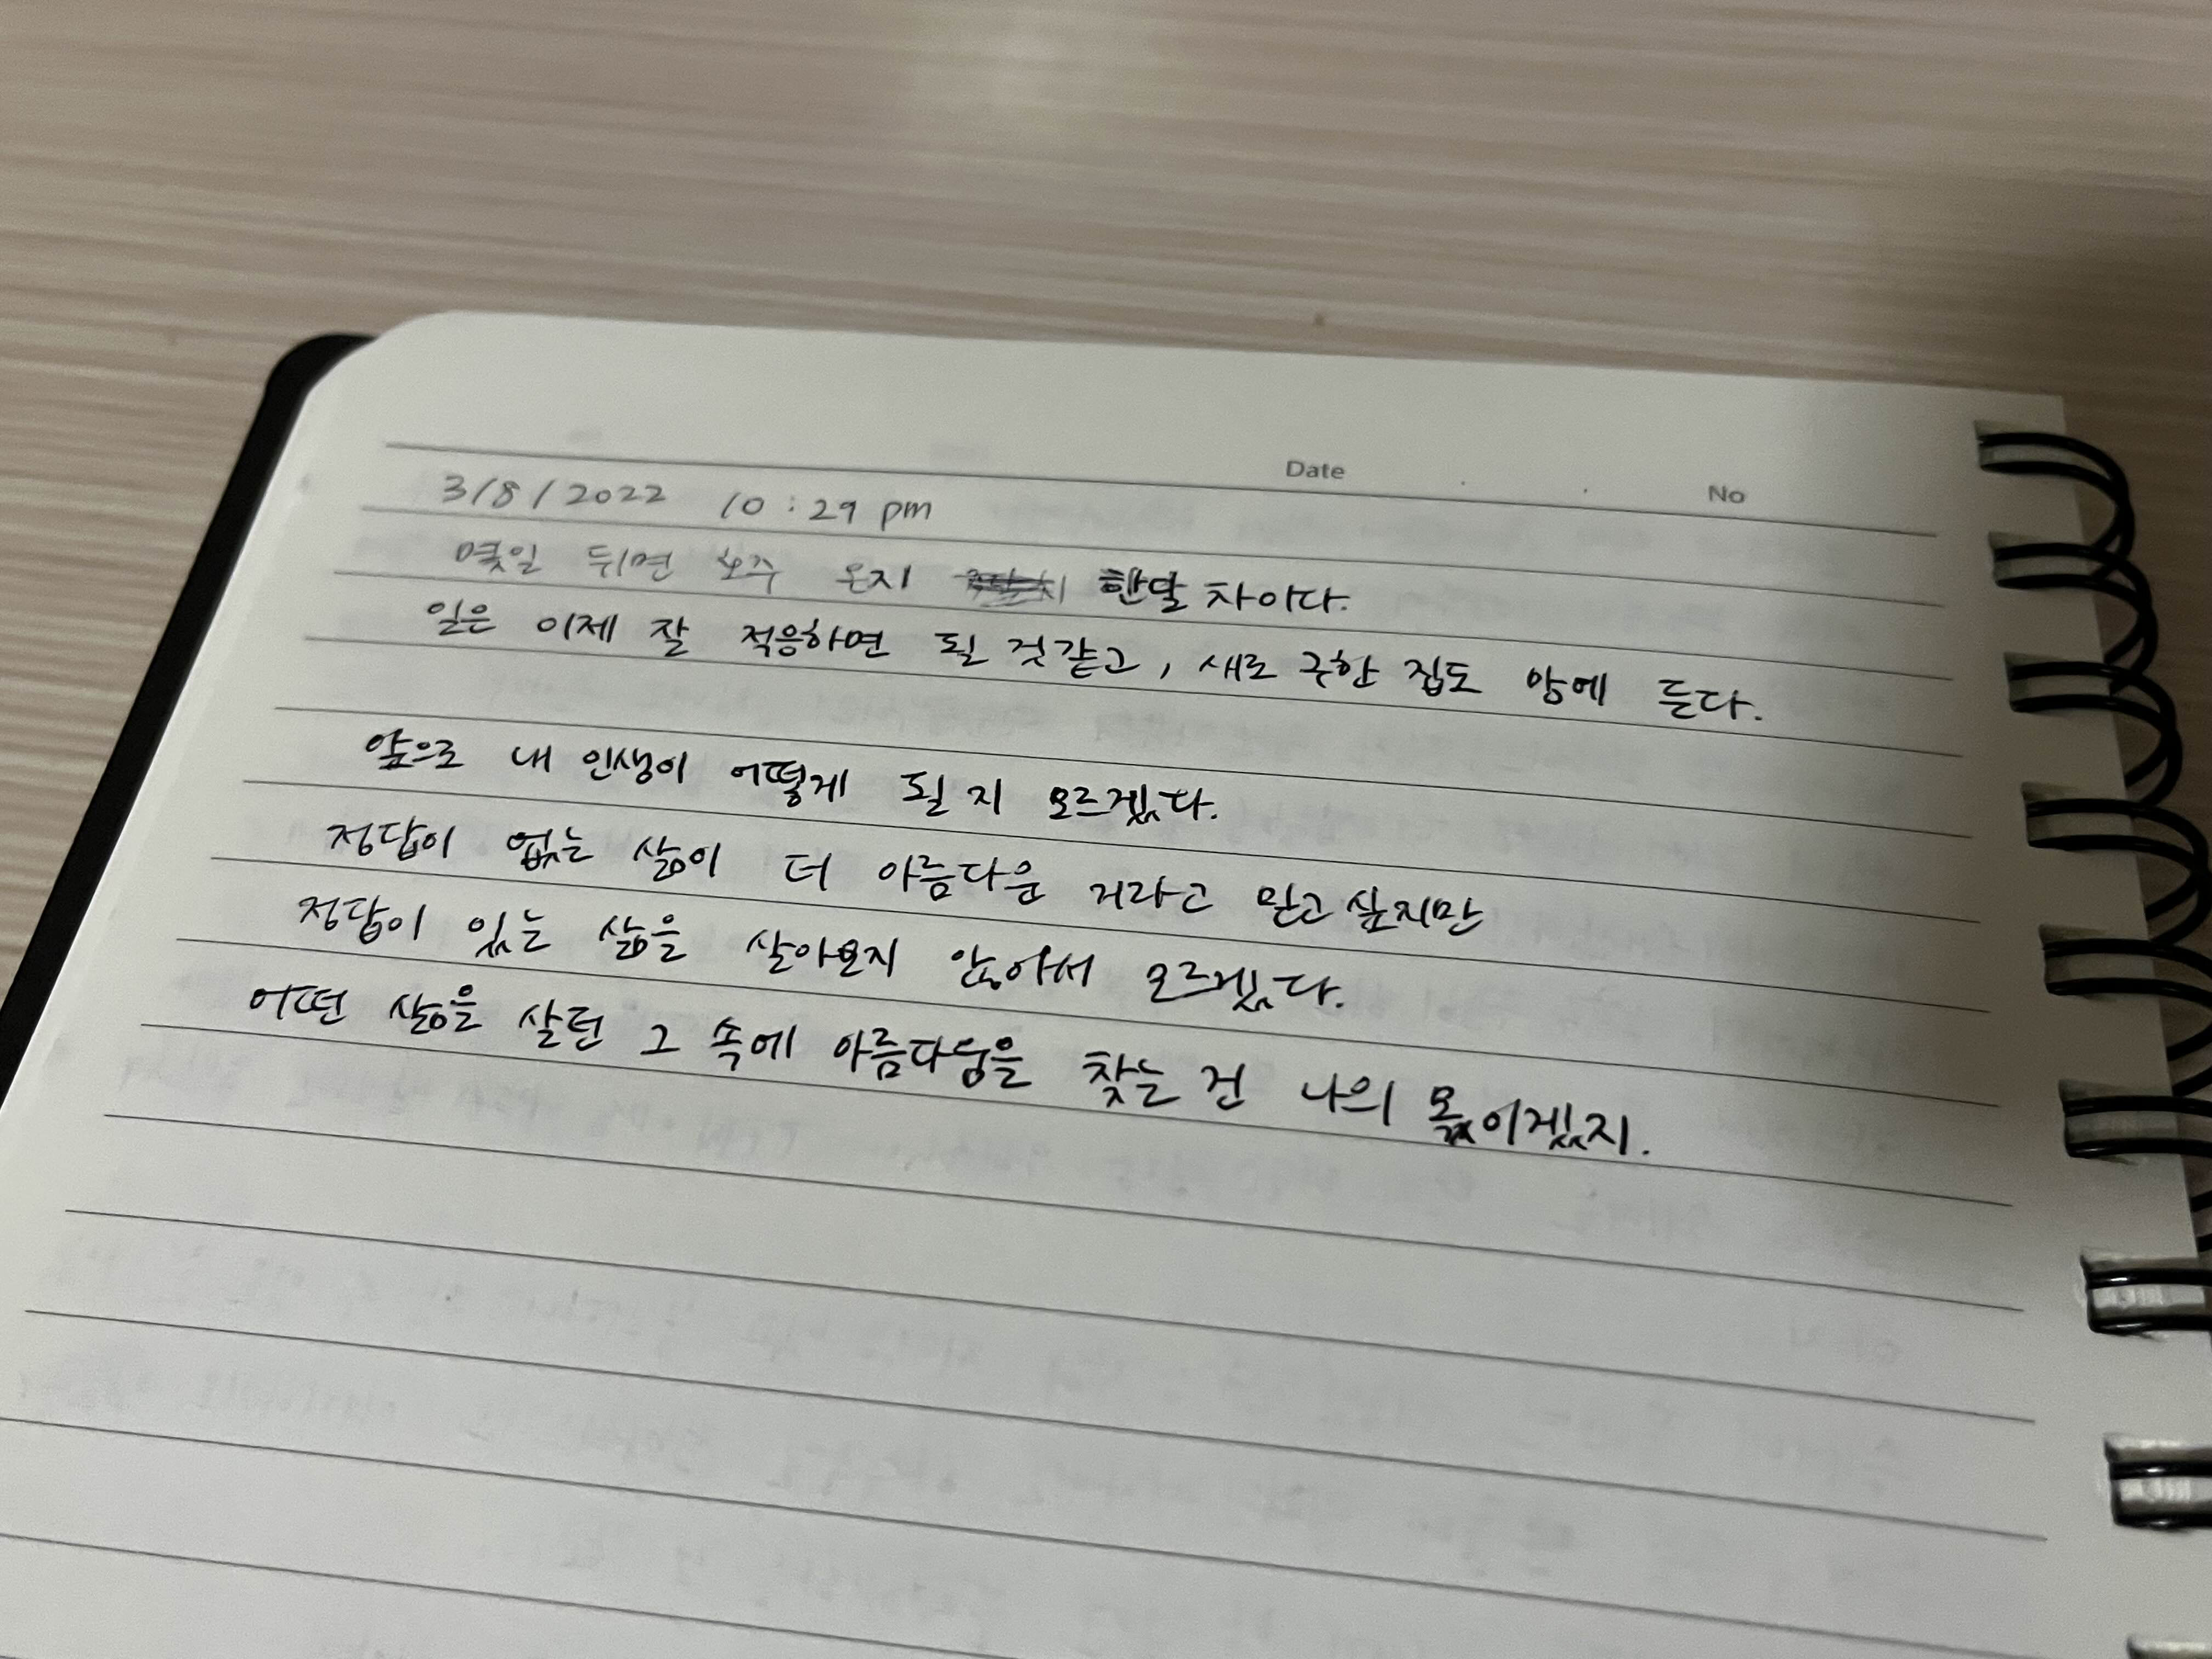 Date No
3/8/2022 10:29 pm
몇일 뒤면 호주 온지 한달 차이다.
일은 이제 잘 적응하면 될 것같고, 새로 구한 집도 맘에 든다.
앞으로 내 인생이 어떻게 될 지 모르겠다.
정답이 없는 삶이 더 아름다운 거라고 믿고 싶지만
정답이 있는 삶을 살아보지 않아서 모르겠다.
어떤 삶을 살던 그 속에 아름다움을 찾는 건 나의 몫이겠지.